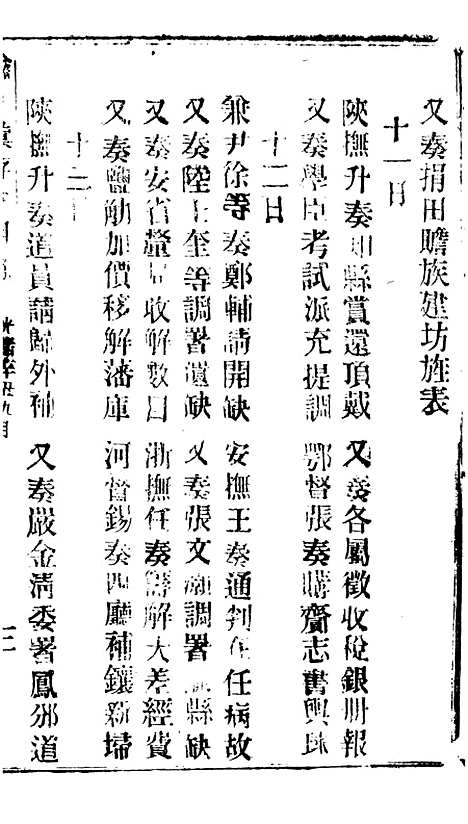 又奏捐田贍族建坊旌表
十一日
陝撫升奏知縣賞還頂戴 又奏各屬徵收稅銀册報
又奏學臣考試派充提調 鄂督張奏購齋志書輿
十二日
兼尹徐等奏鄭輔請開缺 安撫王奏通判在任病故
又奏陸士奎等調署遺缺 又奏張文 調署 縣缺
又奏安省 收解數目 浙撫任奏籌解大差經費
又奏鹽觔加價移解藩庫 河督錫奏四廳補鑲新埽
十三
陝撫升奏道員請歸外補 又奏嚴金清委署鳳邠道